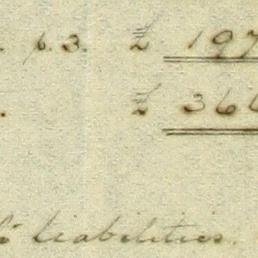 p.3. £ 197
£ 366
liabilities.